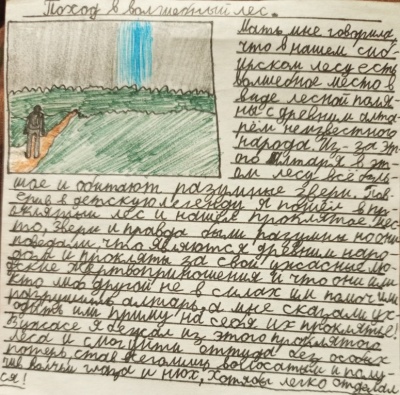 Поход в волшебный лес.
Мать мне говорила
что в нашем сиб-
ирском лесу есть
волшебное место в
виде лесной поля-
ны с древним алта-
рём неизвестного
народа. Из-за эт-
ого алтаря в эт-
ом лесу всё
шое и обитают разумные звери. Пов-
ерив в детскую легенду я пошёл в пр-
оклятый лес и нашёл проклятое мес-
то, звери и правда были разумны но они
поведали что являются древним наро-
дом и прокляты за свои ужасные лю-
дские жертвоприношения и что они или
кто либо другой не в силах им помочь или
разрушить алтарь, а мне сказали ух-
одить или приму на себя их проклятье!
В ужасе я бежал из этого проклятого
леса и смог уйти оттуда без особых
потерь, став всего лишь волосатым и полу-
чив волчьи глаза и нюх, хотя бы легко отделал
ся!